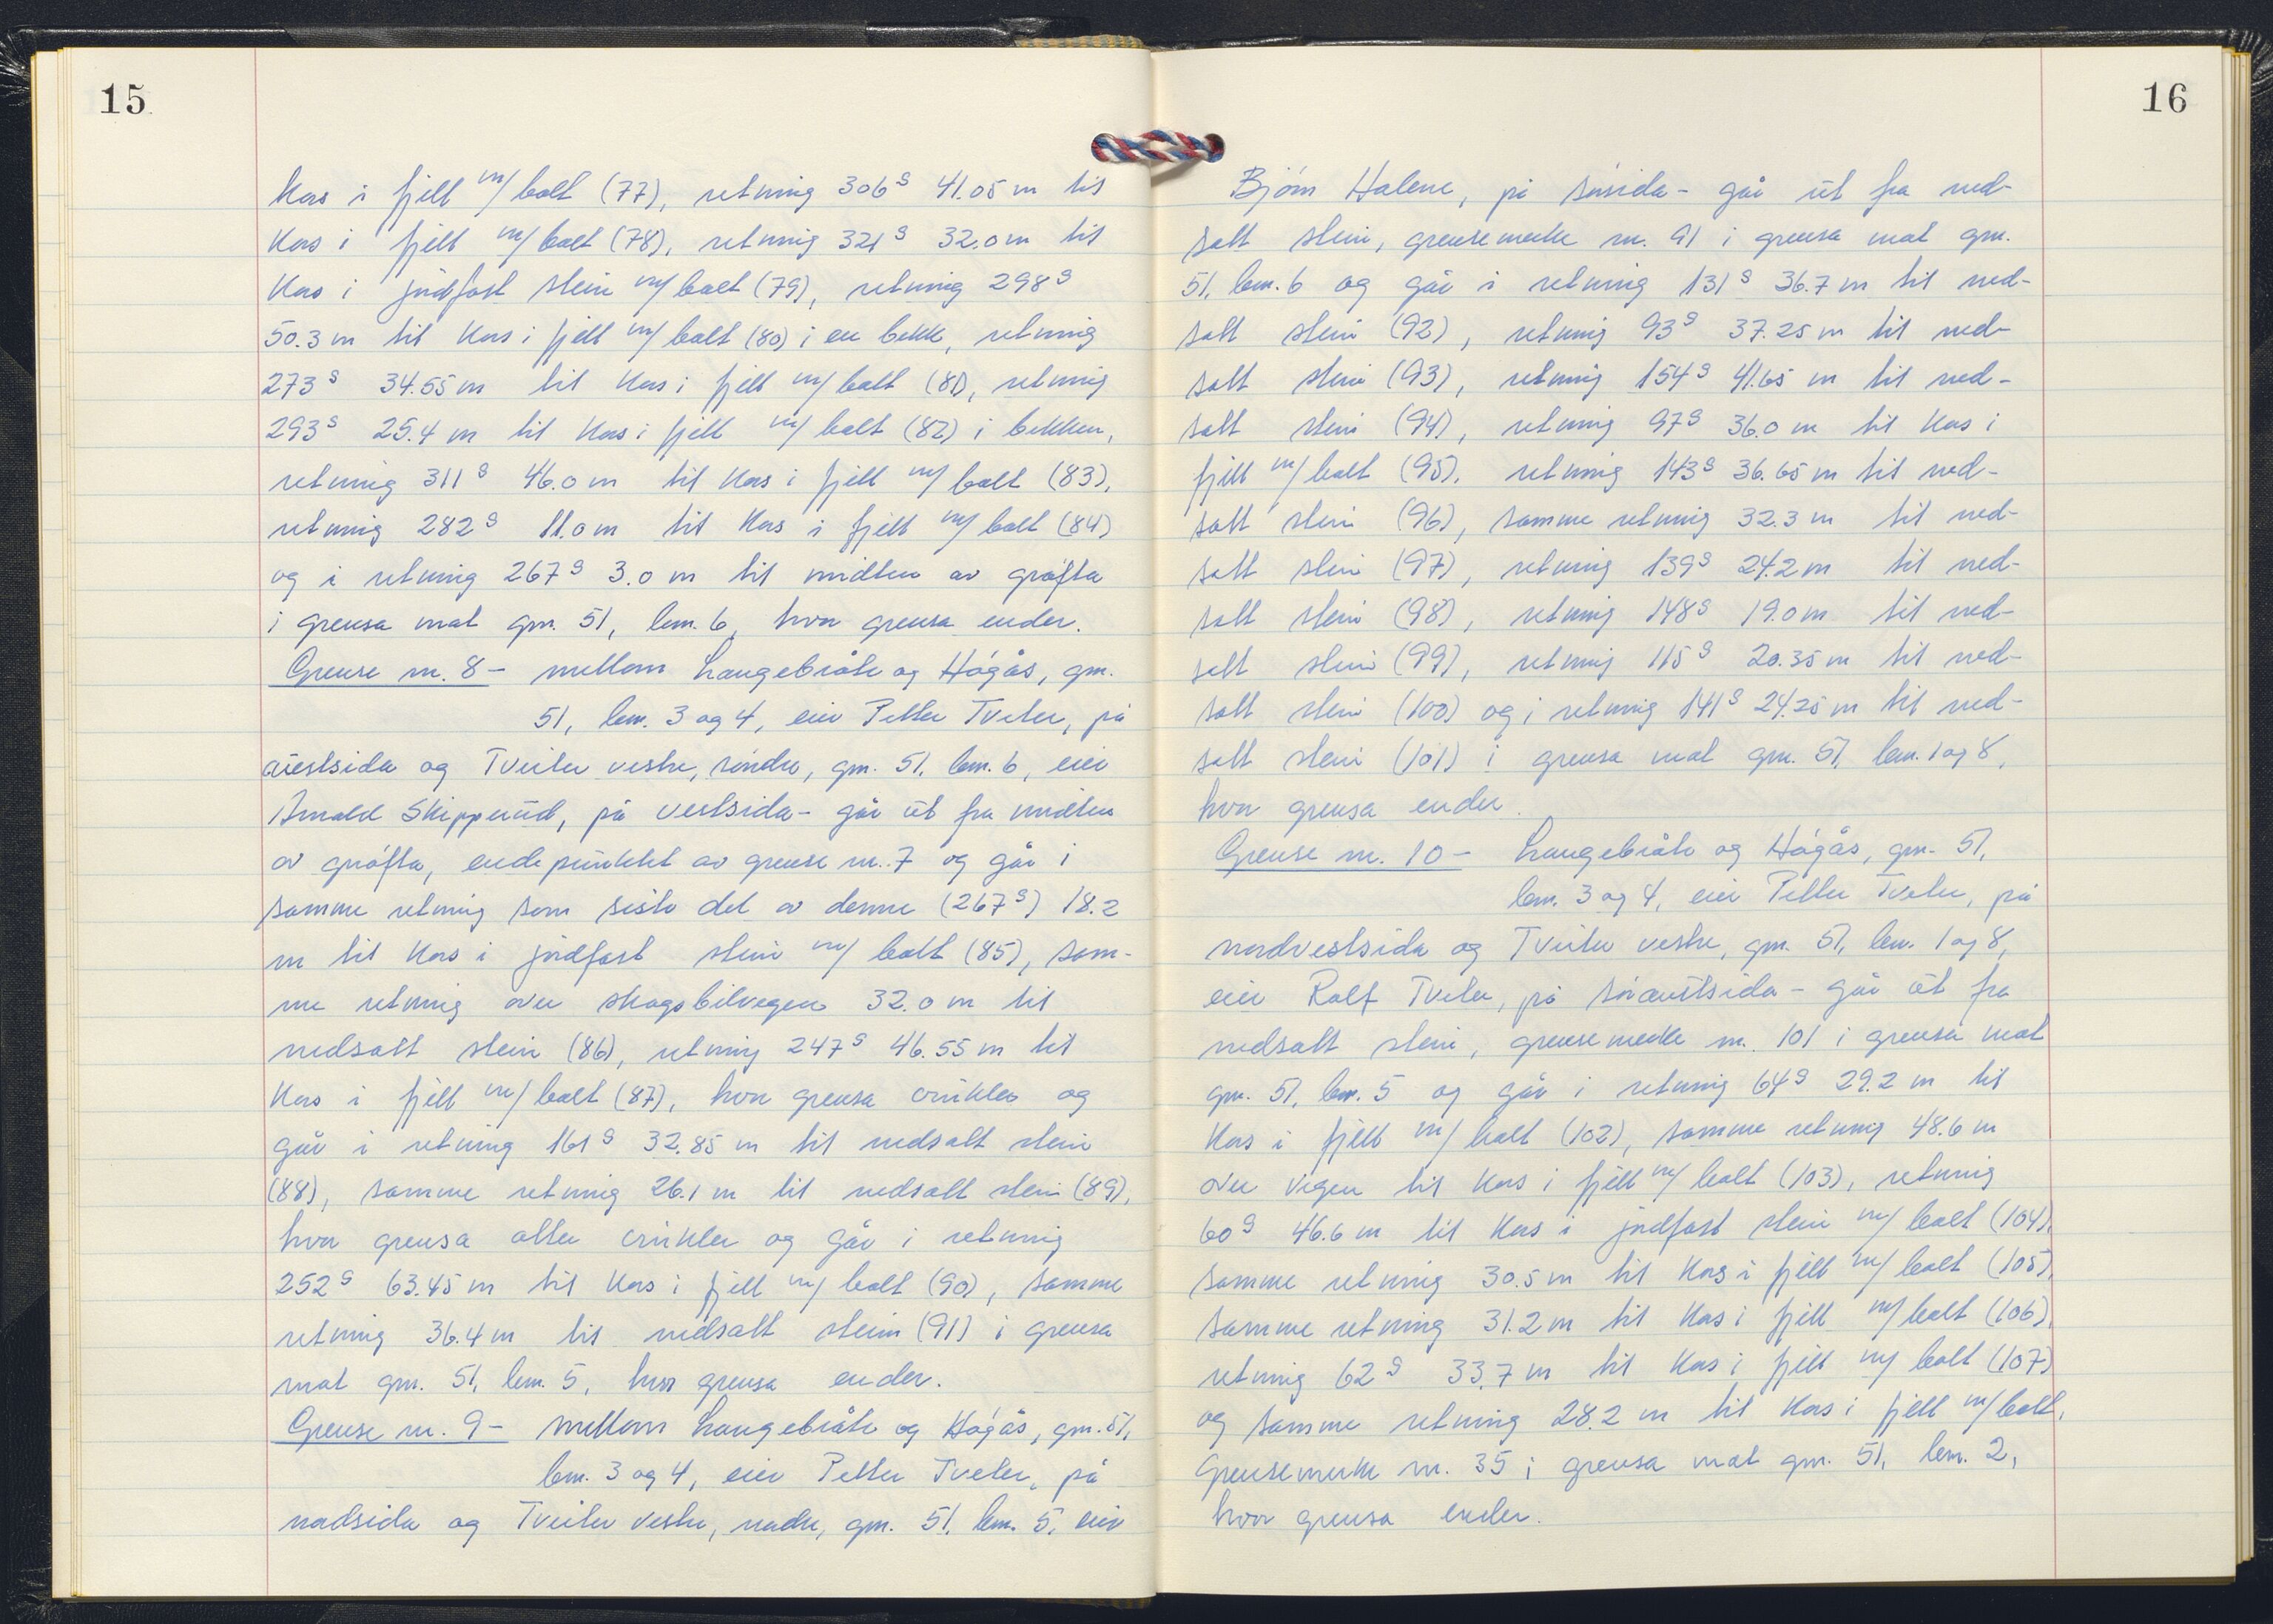 15
kors i fjell m/ bolt (77), retning 306g 41.05 m til
kors i fjell m/ bolt (78), retning 321g 32.0 m til
kors i jordfast stein m/ bolt (79), retning 298g
50.3 m til kors i fjell m/ bolt (80) i en bekk, retning
273g 34.55 m til kors i fjell m/ bolt (81), retning
293g 25.4 m til kors i fjell m/ bolt (82) i bekken,
retning 311g 46.0 m til kors i fjell m/ bolt (83),
retning 282g 11.0 m til kors i fjell m/ bolt (84)
og i retning 267g 3.0 m til midten av grøfta
i grensa mot gnr. 51, bnr. 6, hvor grensa ender.
Grense nr. 8 - mellom Langebråte og Høgås, gnr.
51, bnr. 3 og 4, eier Petter Tveter, på
austsida og Tveiter vestre, søndre, gnr. 51, bnr. 6, eier
Arnold Skipperud, på vestsida - går ut fra midten
av grøfta, endepunktet av grense nr. 7 og går i
samme retning som siste del av denne (267g) 18.2
m til kors i jordfast stein m/ bolt (85), sam-
me retning over skogsbilvegen 32.0 m til
nedsatt stein (86), retning 247g 46.55 m til
kors i fjell m/ bolt (87), hvor grensa vinkler og
går i retning 161g 32.85 m til nedsatt stein
(88), samme retning 26.1 m til nedsatt stein (89),
hvor grensa atter vinkler og går i retning
252g 63.45 m til kors i fjell m/ bolt (90), samme
retning 36.4 m til nedsatt stein (91) i grensa
mot gnr. 51, bnr. 5, hvor grensa ender.
Grense nr. 9 - mellom Langebråte og Høgås, gnr. 51,
bnr. 3 og 4, eier Petter Tveter, på
nordsida og Tveiter vestre, nordre, gnr. 51, bnr. 5, eier
16
Bjørn Halene, på sørsida - går ut fra ned-
satt stein, grensemerke nr. 91 i grensa mot gnr.
51, bnr. 6 og går i retning 131g 36.7 m til ned-
satt stein (92), retning 93g 37.25 m til ned-
satt stein (93), retning 154g 41.65 m til ned-
satt stein (94), retning 97g 36.0 m til kors i
fjell m/ bolt (95), retning 143g 36.65 m til ned-
satt stein (96), samme retning 32.3 m til ned-
satt stein (97), retning 139g 24.2 m til ned-
satt stein (98), retning 148g 19.0 m til ned-
satt stein (99), retning 115g 20.35 m til ned-
satt stein (100) og i retning 141g 24.25 m til ned-
satt stein (101) i grensa mot gnr. 51, bnr. 1 og 8,
hvor grensa ender.
Grense nr. 10 - Langebråte og Høgås, gnr. 51,
bnr. 3 og 4, eier Petter Tveter, på
nordvestsida og Tveiter vestre, gnr. 51, bnr. 1 og 8,
eier Rolf Tveter, på søraustsida - går ut fra
nedsatt stein, grensemerke nr. 101 i grensa mot
gnr. 51, bnr. 5 og går i retning 64g 29.2 m til
kors i fjell m/ bolt (102), samme retning 48.6 m
over vegen til kors i fjell m/ bolt (103), retning
60g 46.6 m til kors i jordfast stein m/ bolt (104),
samme retning 30.5 m til kors i fjell m/ bolt (105),
samme retning 31.2 m til kors i fjell m/ bolt (106),
retning 62g 33.7 m til kors i fjell m/ bolt (107)
og samme retning 28.2 m til kors i fjell m/ bolt,
grensemerke nr. 35 i grensa mot gnr. 51, bnr. 2,
hvor grensa ender.